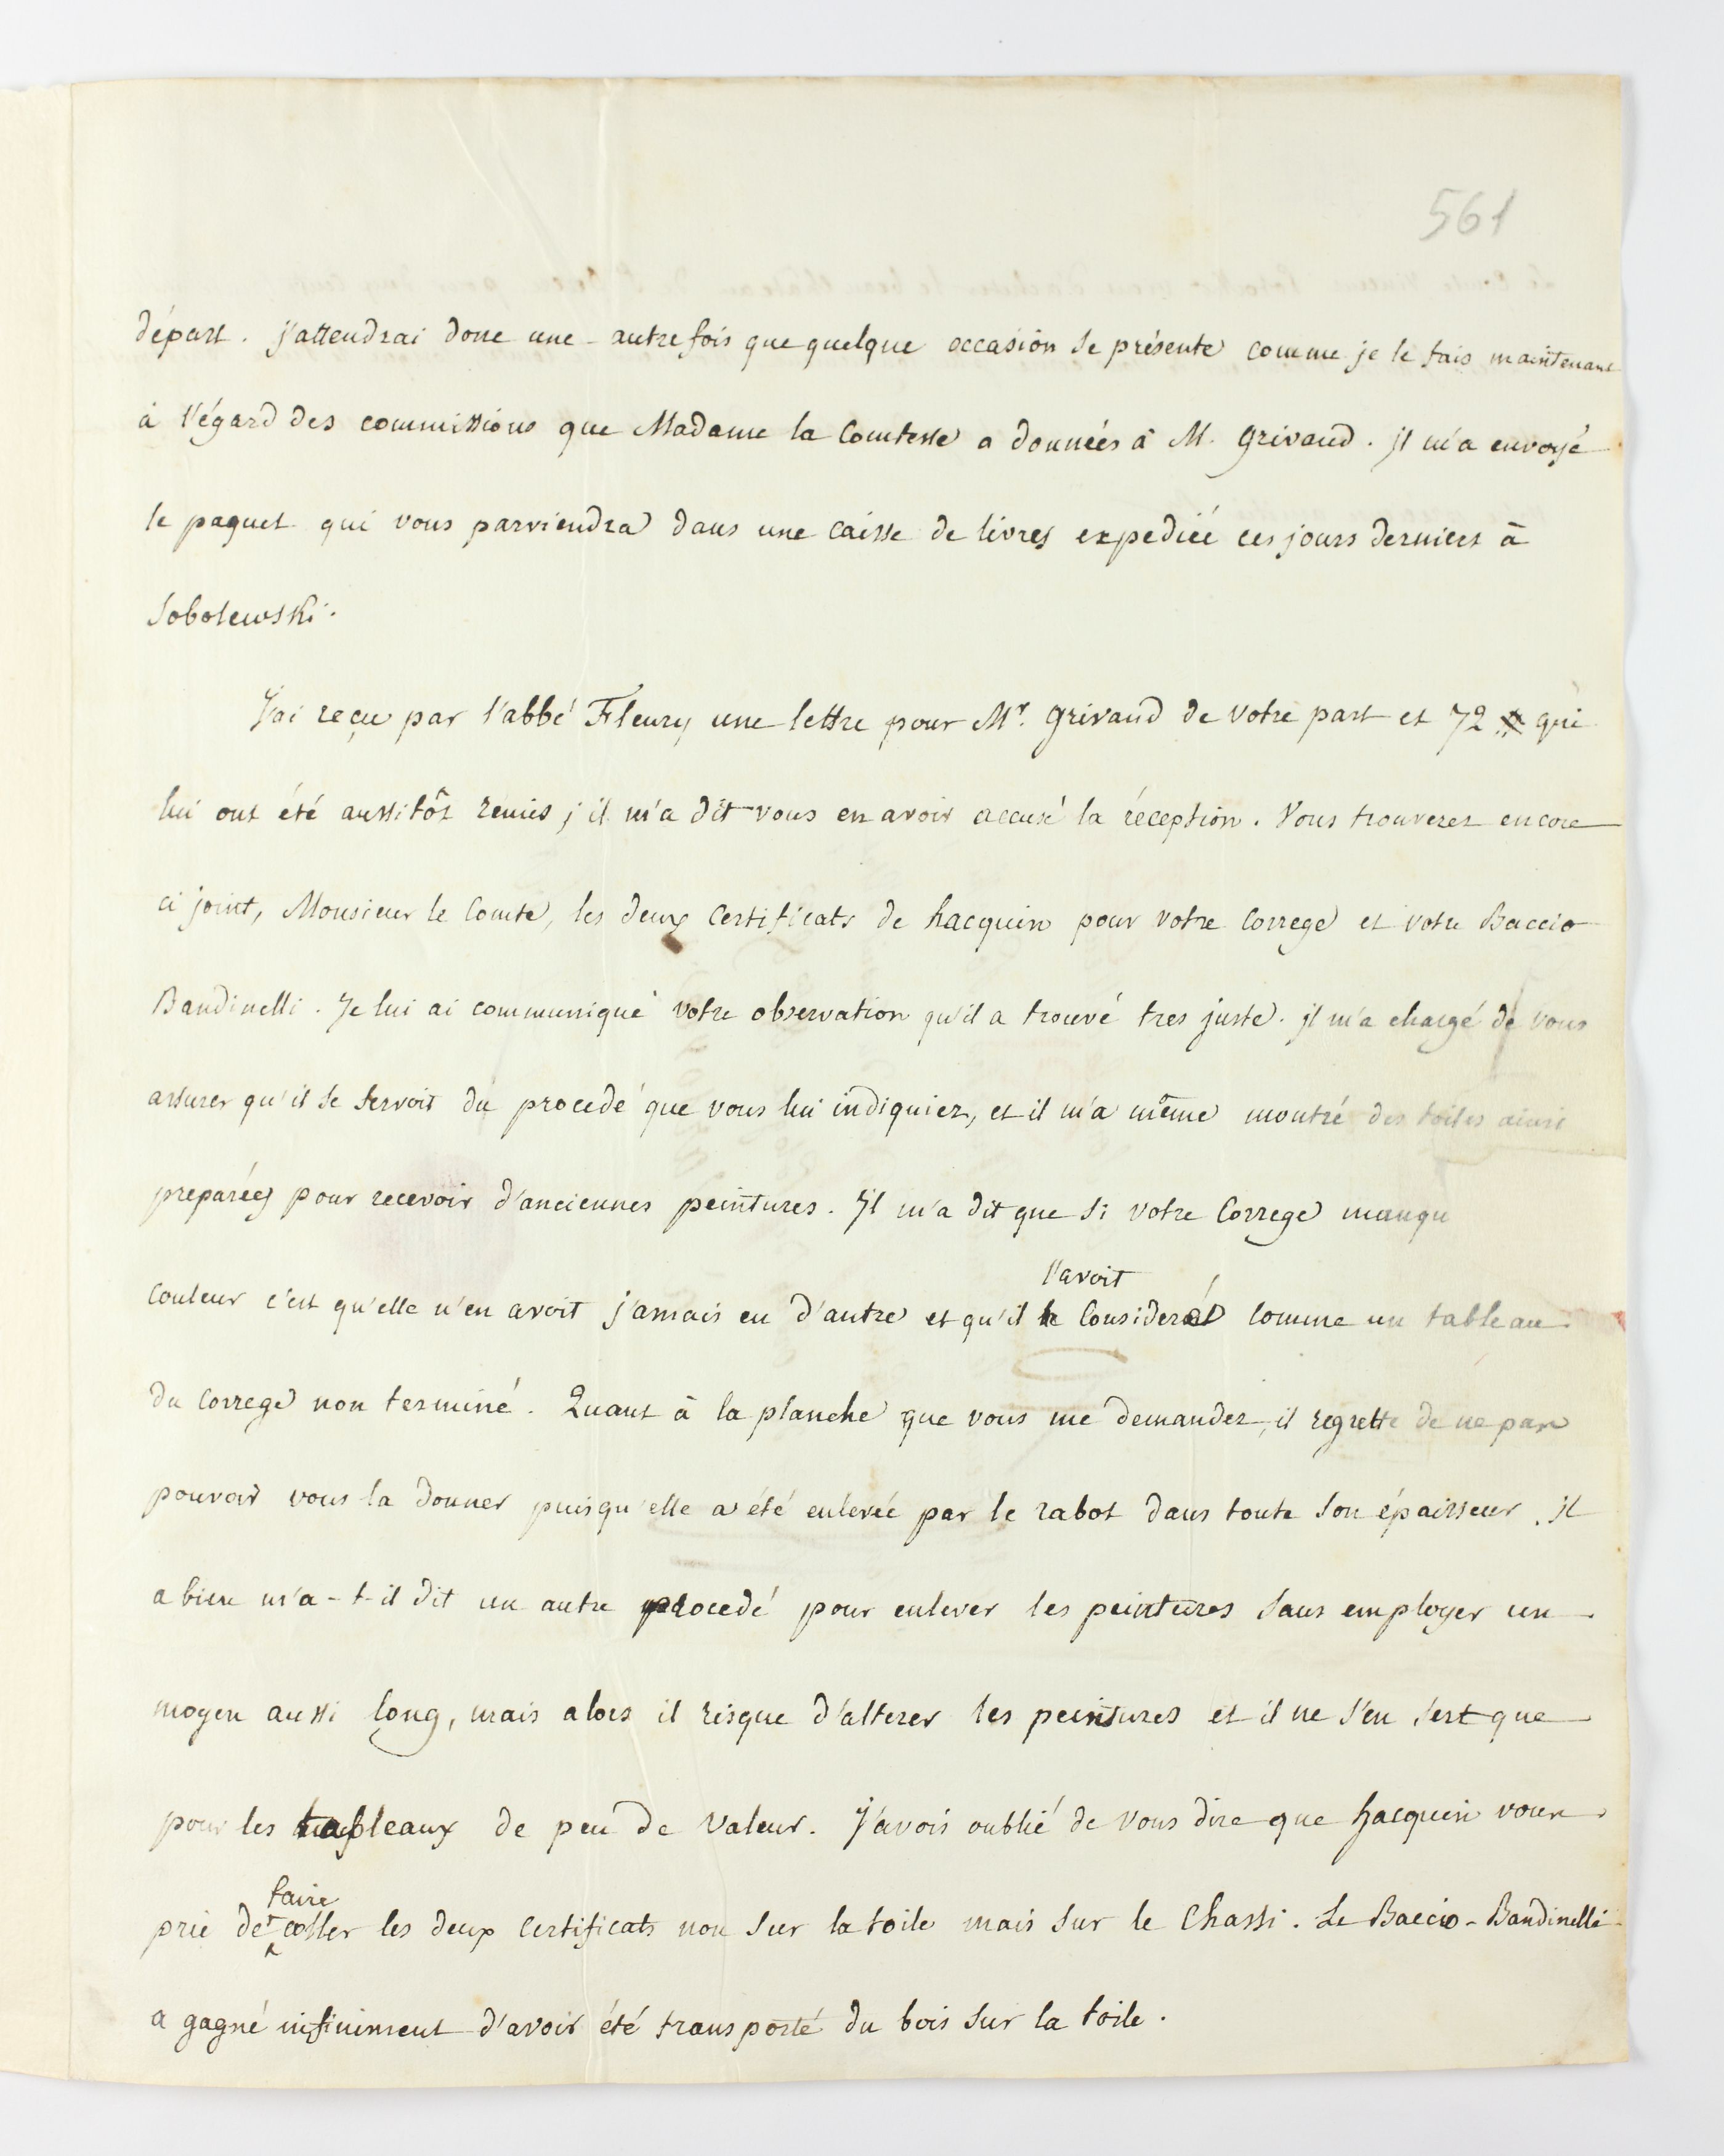 561
départ. j'attendrai donc une autre fois que quelque occasion se présente comme je le fais maintenant
à l'égard des commissions que Madame la Comtesse a données à M. Grivaud. il m'a envoyé
le paquet qui vous parviendra dans une caisse de livres expediéé ces jours derniers à
Sobolewski.
J'ai reçu par l'abbé Fleury une lettre pour Mr. Grivaud de votre part et 72 # qui
lui ont été aussitôt remis; il m'a dit vous en avoir accusé la réception. Vous trouverez encore
ci joint, Monsieur le Comte, les deux Certificats de hacquin pour votre Correge et votre Baccio
Bandinelli. Je lui ai communiqué votre observation qu'il a trouvé tres juste. il m'a chargé de vous
assurer qu'il se servoit du procedé que vous lui indiquiez, et il m'a même montré des toiles ainsi
preparées pour recevoir d'anciennes peintures. Il m'a dit que si votre Correge manqu
l'avoit
couleur c'est qu'elle n'en avoit jamais eu d'autre et qu'il le Consideré comme un tableau
du Correge non terminé. Quant à la planche que vous me demandez, il regrette de ne pas
pouvoir vous la donner puisqu'elle a été enlevéé par le rabot dans toute son épaisseur. il
a bien m'a-t-il dit un autre procedé pour enlever les peintures sans employer un
moyen aussi long, mais alors il risque d'alterer les peintures et il ne s'en sert que
pour les tableaux de peu de valeur. J'avois oublié de vous dire que hacquin vous
faire
prie de coller les deux Certificats non sur la toile mais sur le Chassi. Le Baccio-Bandinelli
a gagné infiniment d'avoir été transporté du bois sur la toile.